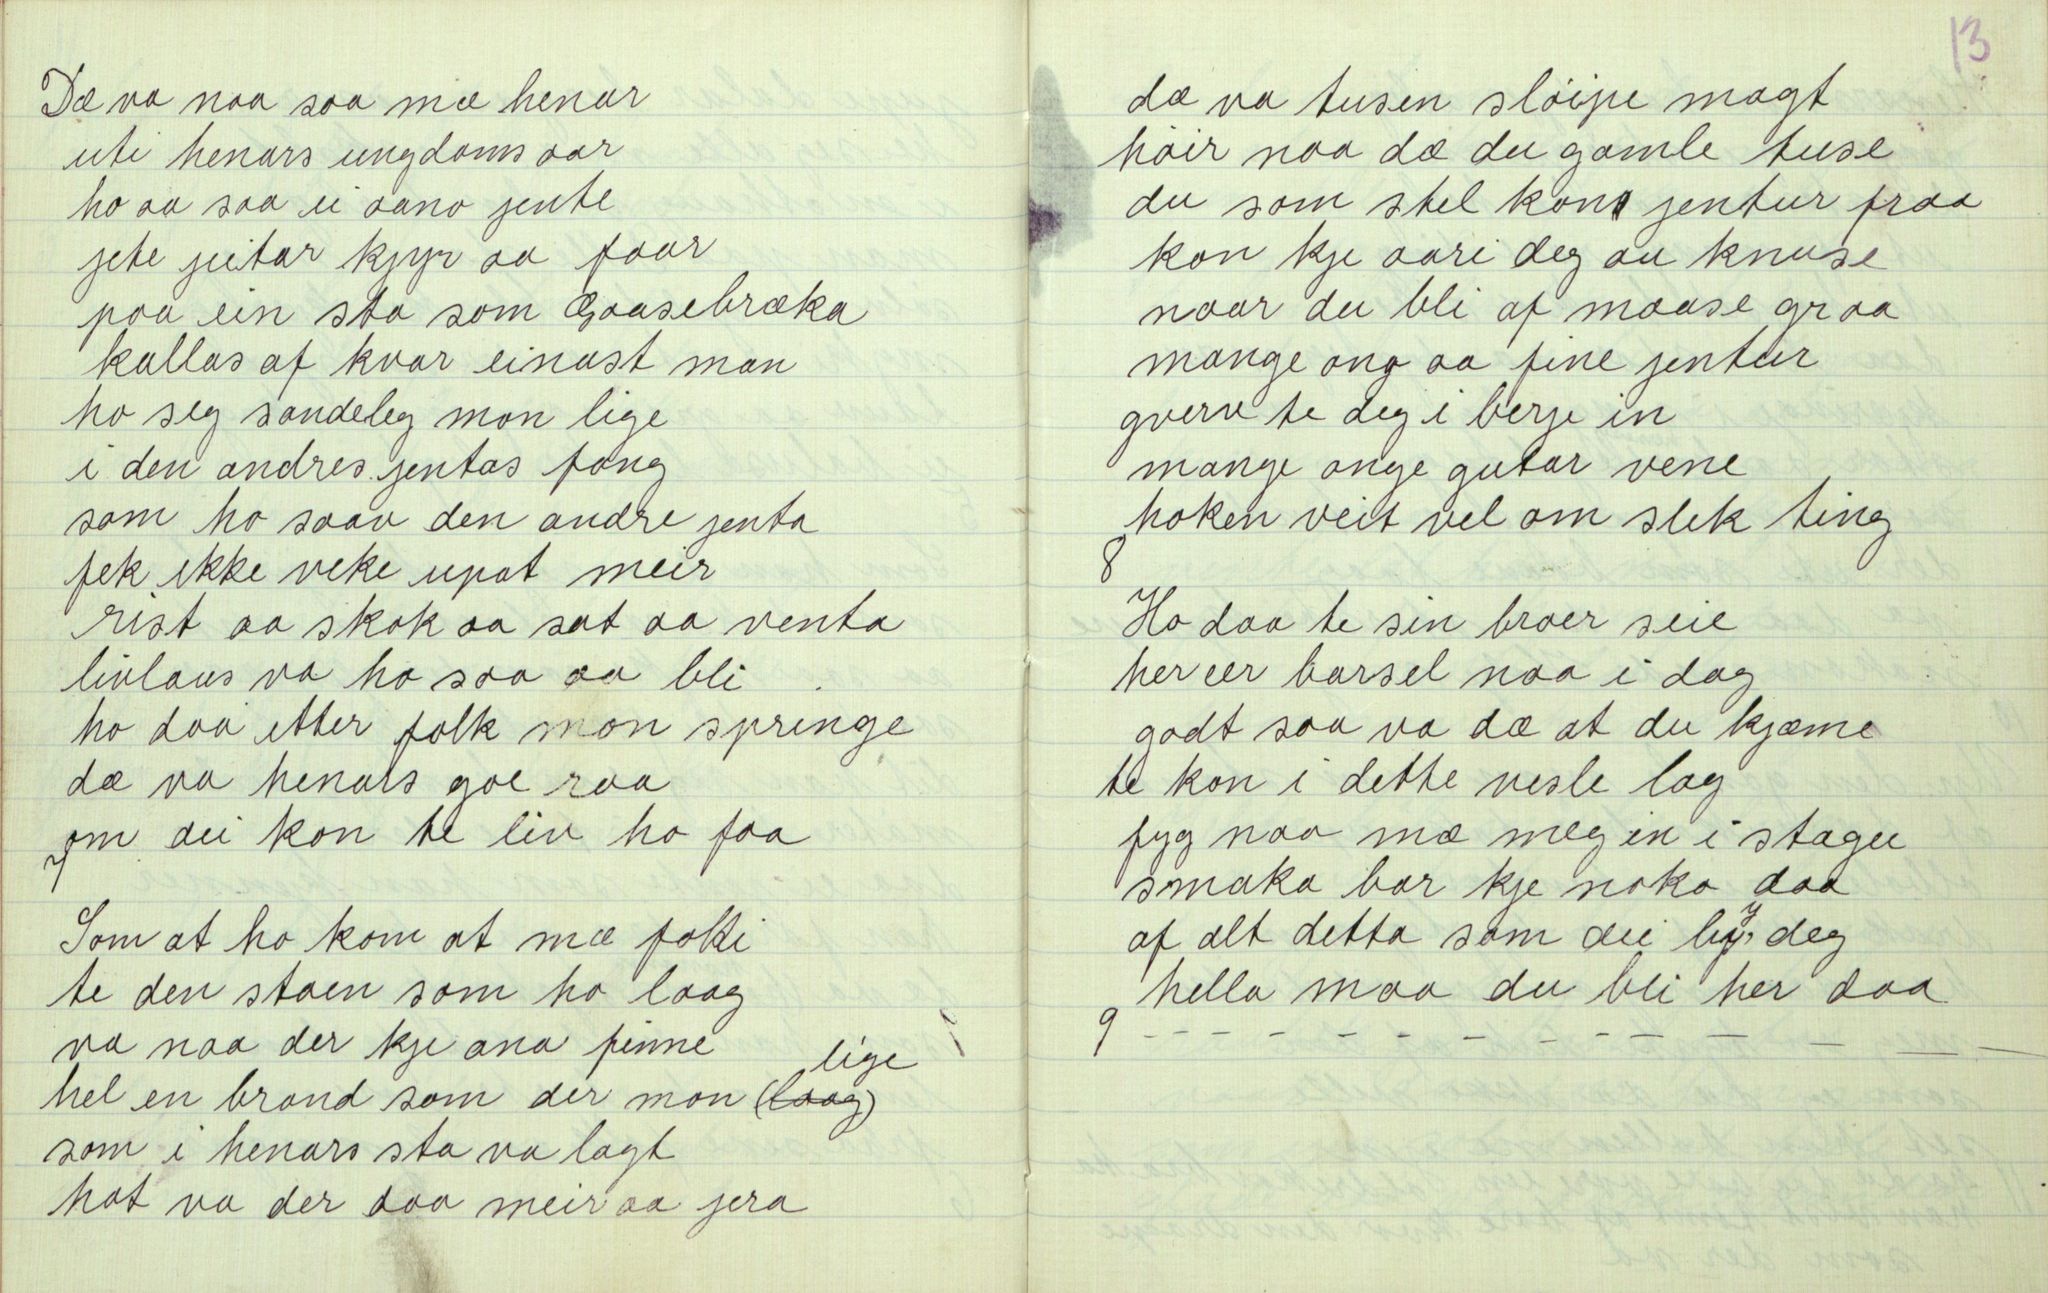 Dæ va naa saa mæ henar
uti henars ungdoms aar
ho aa saa ei aano jente
jete jeitar kjyr aa faar
paa ein sta som Gaasebræka
kallas af kvar einast man
ho seg sandeleg mon lige
i den andres jentas fang
som ho saav den andre jenta
fek ikke veke upat meir
rist aa skok aa sat aa venta
livlaus va ho saa aa bli
ho daa etter folk mon springe
dæ va henars goe raa
om dei kon te liv ho faa
7
Som at ho kom at mæ folki
te den staen som ho laag
va naa der kje ana finne
lige
hel en brand som der mon (laag)
som i henars sta va lagt
hot va der daa meir aa jera
13
dæ va tusen slöipe magt
höir naa dæ du gamle tuse
du som stel kons jentur fraa
kon kje aari deg au knuse
naar du bli af maase graa
mange ong aa fine jentur
gverv te deg i berje in
mange onge gutar vene
hoken veit vel om slek ting
8
Ho daa te sin broer seie
her eer barsel naa i dag
godt saa va dæ at du kjæme
te kon i dette vesle lag
fyg naa mæ meg in i stagu
smaka bar kje noko daa
af alt detta som dei by deg
hella maa du bli her daa
9 - - - - - - - - - - - - -